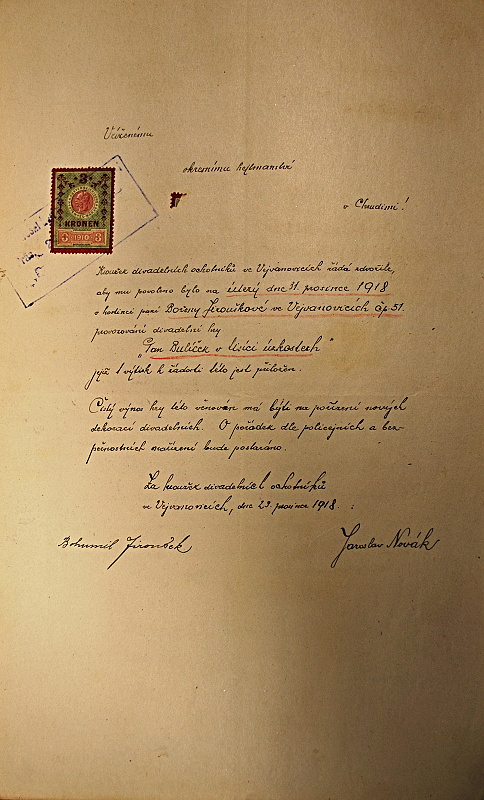 Ctěnému
okresnímu hejtmanství
v Chrudimi!
3
KRONEN
3 1910 3
Kroužek divadelních ochotníků ve Vejvanovicích žádá zdvořile,
aby mu povoleno bylo na úterý dne 31. prosince 1918
v hostinci paní Boženy Jirouškové ve Vejvanovicích čp. 51.
provozování divadelní hry
"Pan Bulíček v tisíci úzkostech"
jejíž 1 výtisk k žádosti této jest přiložen.
Čistý výnos hry této věnován má býti na pořízení nových
dekorací divadelních. O pořádek dle policejních a bez-
pečnostních nařízení bude postaráno.
Za kroužek divadelních ochotníků
ve Vejvanovicích, dne 23. prosince 1918.
Bohumil Jiroušek
Jaroslav Novák